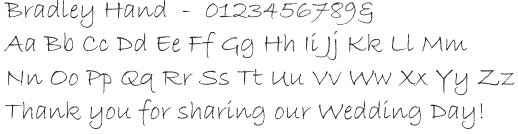 Bradley Hand - 0123456789&
Aa Bb Cc Dd Ee Ff Gg Hh Ii Jj Kk Ll Mm
Nn Oo Pp Qq Rr Ss Tt Uu Vv Ww Xx Yy Zz
Thank you for sharing our Wedding Day!